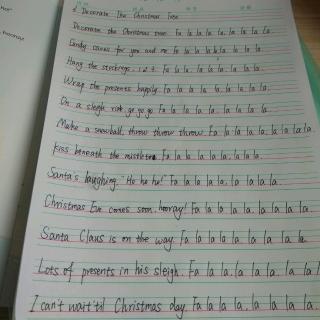 d Decorate The Christmas Tree
Decorate the Christmas tree. Fa la la la la. la la la la.
Candy canes for you and me Fa la la la la la la la la.
Hang the stockings. 1.2.3. Fa la la la la. la la la la.
Wrap the presents happily. Fa la la la la. la la la la.
On a sleigh ride go go go Fa la la la la. la la la la.
Make a snowball. throw throw throw. Fa la la la la. la la la la.
Kiss beneath the mistletoe Fa la la la la. la la la la.
Santa's laughing. "Ho ho ho!" Fa la la la la. la la la la.
Christmas Eve comes soon. hooray! Fa la la la la. la la la la.
Santa Claus is on the way. Fa la la la la la la la la.
Lots of presents in his sleigh. Fa la la la. la la la la
I can't wait 'til Christmas day. Fa la la la. la la la la.